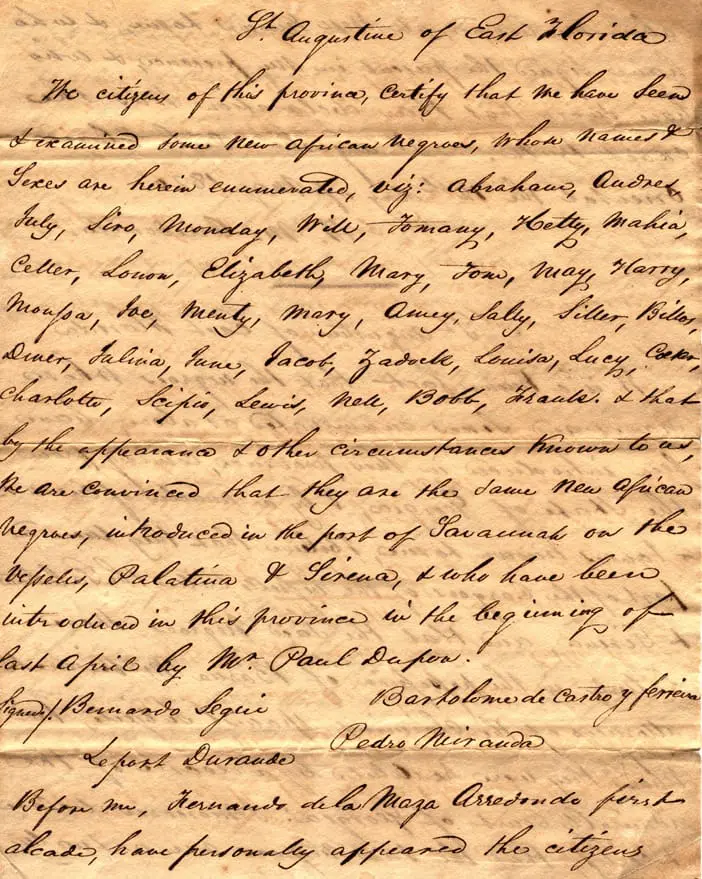 St. Augustine of East Florida
We citizens of this province, certify that we have seen
& examined some new african negroes, whose names &
Sexes are herein enumerated, viz: Abraham, Andres
July, Siro, Monday, Will, Tomany, Hetty, Mahia,
Celler, Lonon, Elizabeth, Mary, Tom, May, Harry,
Moussa, Joe, Menty, Mary, Amey, Sally, Siller,
Diver, Julina, June, Jacob, Zadock, Louisa, Lucy,
Charlotte, Scipio, Lewis, Nell, Bobb, Frank. & that
by the appearance & other circumstances known to us,
We are convinced that they are the same new african
negroes, introduced in the port of Savannah on the
vessels, Palatina & Sirena, & who have been
introduced in this province in the beginning of
last April by Mr. Paul Dupon.
Signed/. Bernardo Segui Bartolome de Castro y ferreira
Pedro Miranda
Leport Durande
Before me, Fernando de la Maza Arredondo first
alcade, have personally appeared the citizens